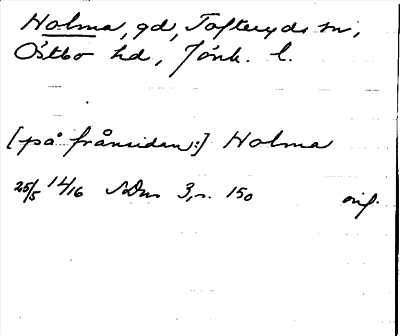 Holma, gd, Tofteryds sn,
Östbo hd, Jönk. l.
[på frånsidan:] Holma
25/5 1416 SDns 3, s. 150 orig.